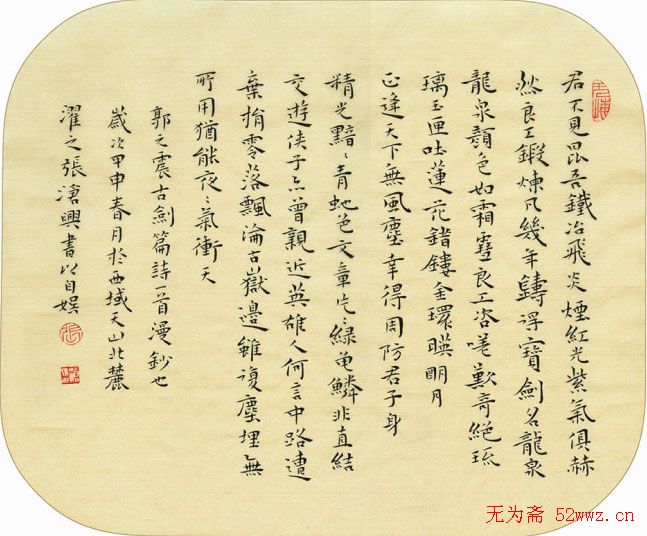 君不見昆吾鐵冶飛炎煙紅光紫氣俱赫
然良工鍛煉凡幾年鑄得寶劍名龍泉
龍泉顏色如霜雪良工咨嗟歎奇絕琉
璃玉匣吐蓮花錯鏤金環暎明月
正逢天下無風塵幸得周防君子身
精光黯〻青虵色文章片〻綠龜鱗非直結
交遊俠子亦曾親近英雄人何言中路遭
棄捐零落飄淪古嶽邊雖復塵埋無
所用猶能夜〻氣衝天
郭元震古劍篇詩一首漫鈔也
歲次甲申春月於西域天山北麓
濯之張滄興書以自娛
无为斋 52wwz.cn